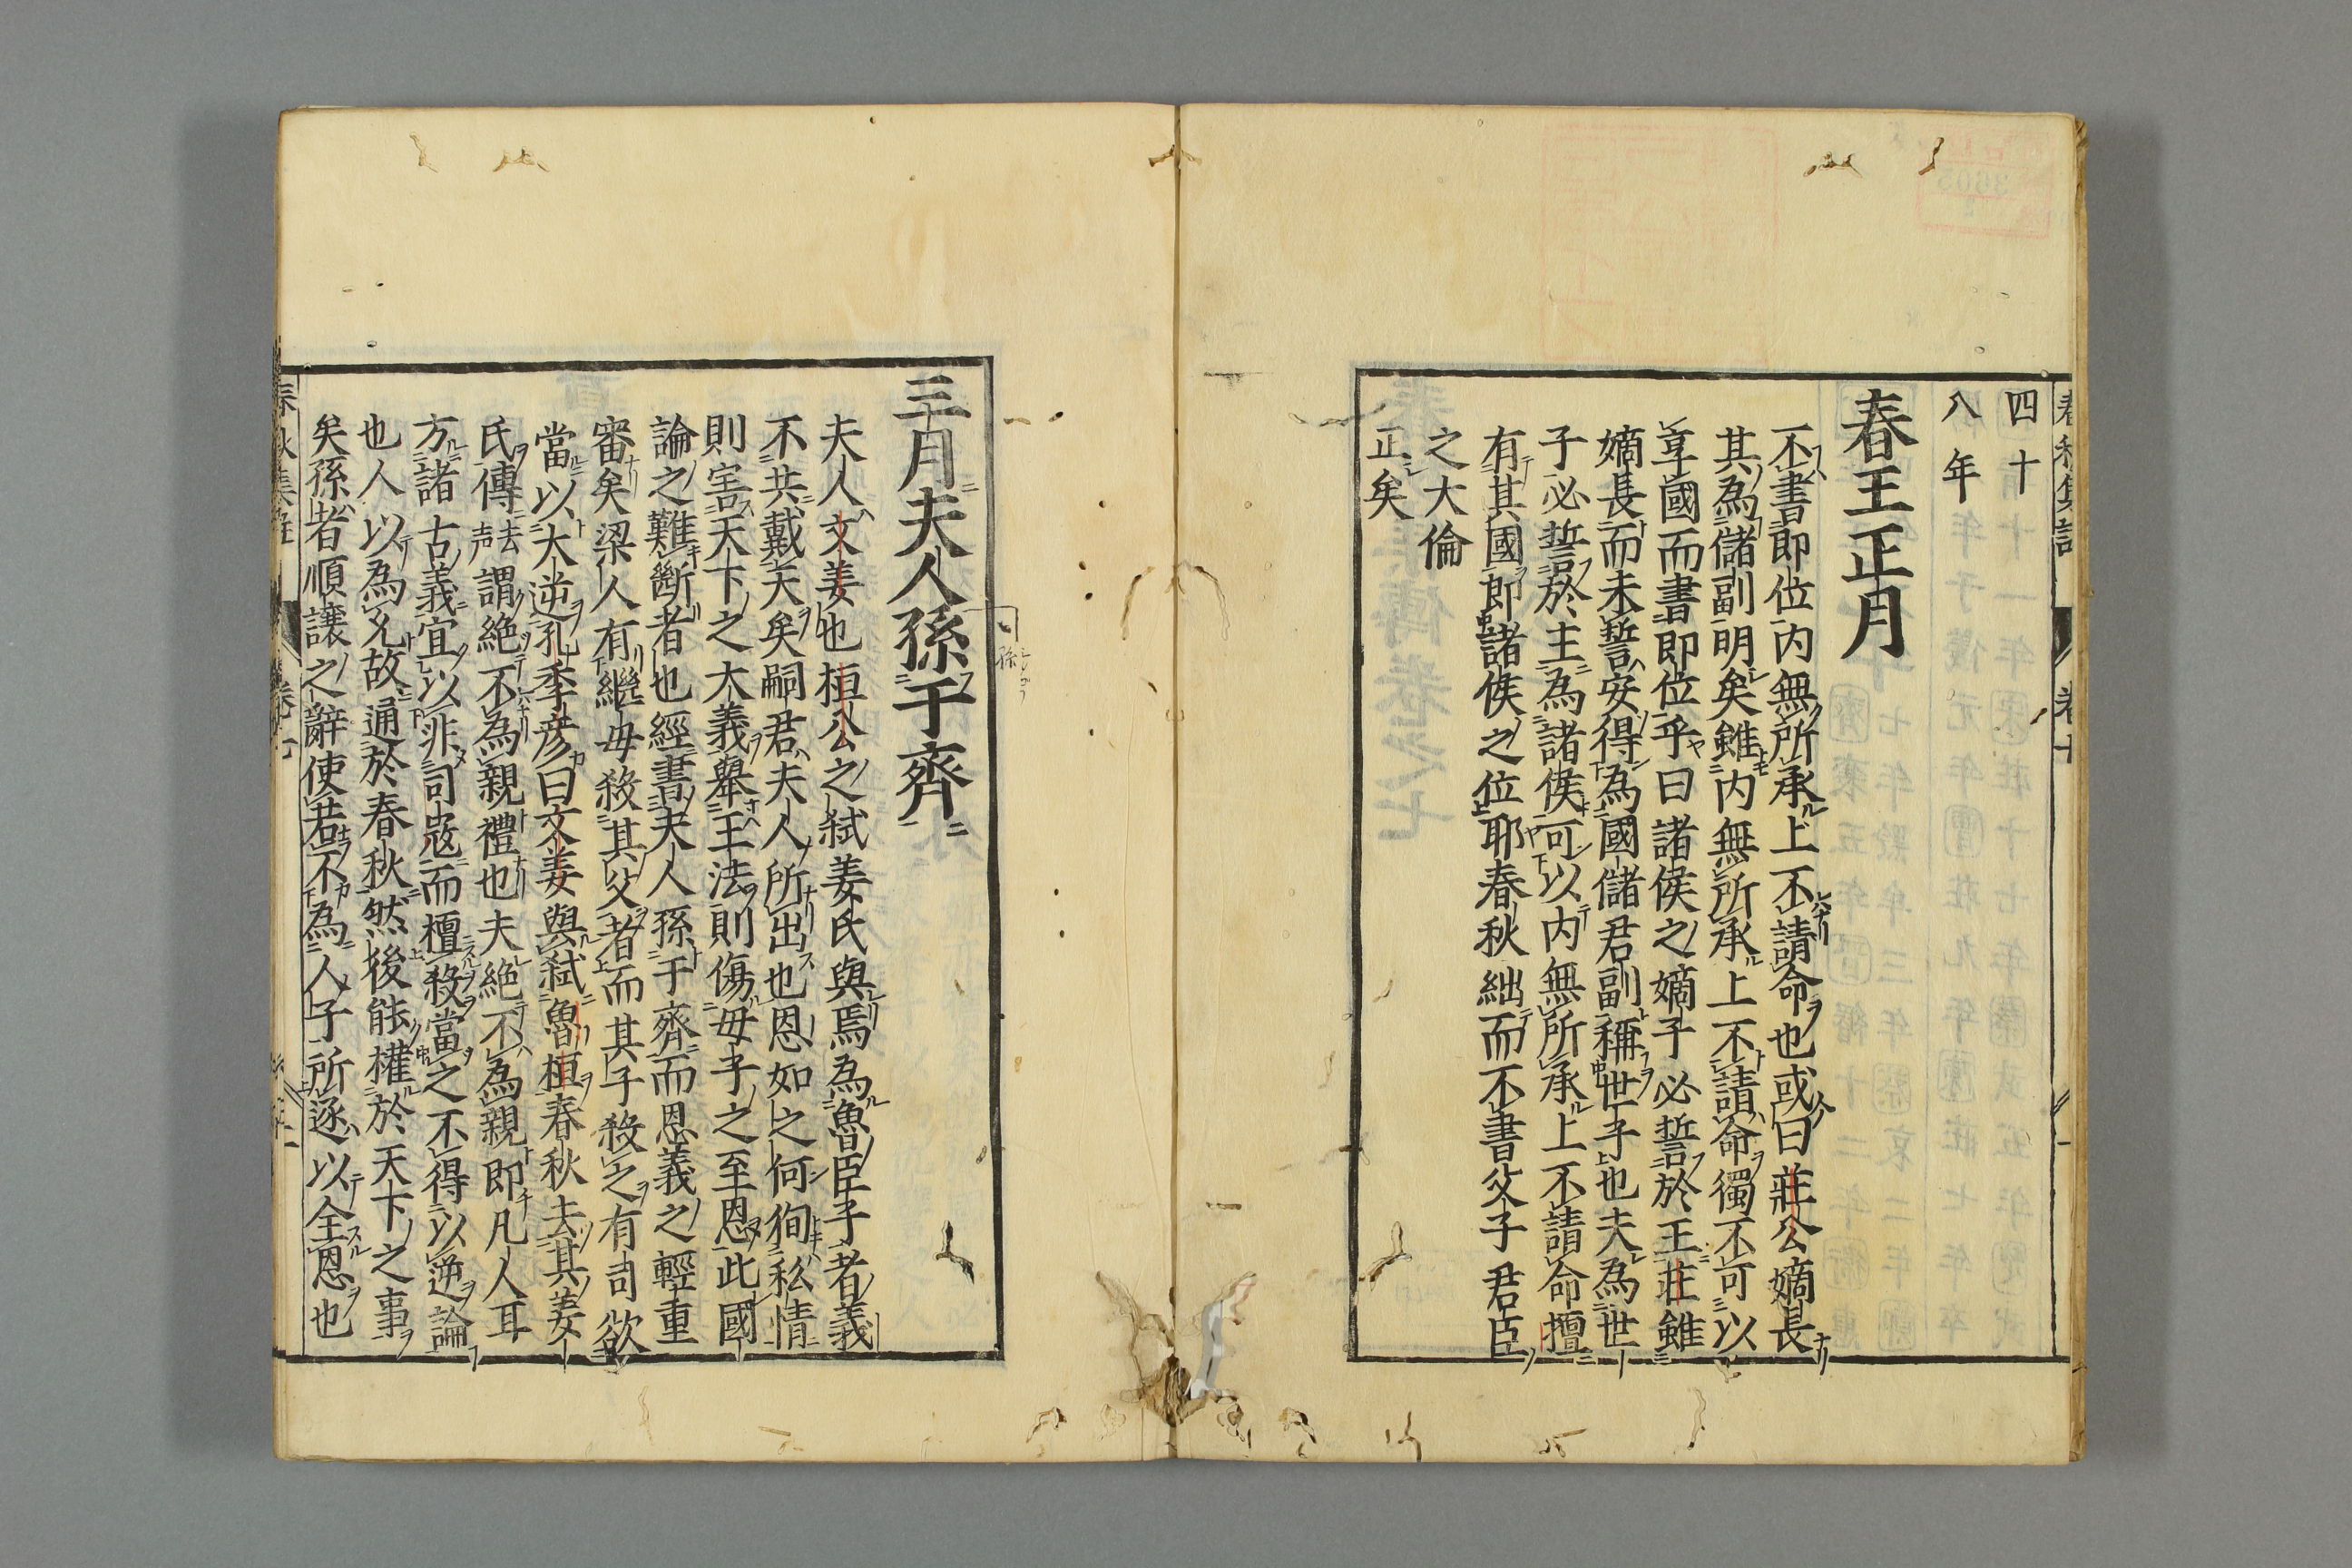 四十
八年
春王正月
不書即位内無所承上不請命也或曰莊公嫡長
其為儲副明矣雖内無所承上不請命獨不可以
享國而書即位乎曰諸侯之嫡子必誓於王莊雖
嫡長而未誓安得為國儲君副稱世子也夫為世
子必誓於主為諸侯可以内無所承上不請命擅
有其國即諸侯之位耶春秋絀而不書父子君臣
之大倫
正矣
三月夫人孫于齊
夫人文姜也桓公之弑姜氏與焉為魯臣子者義
不共戴天矣嗣君夫人所出也恩如之何徇私情
則害天下之大義舉王法則傷母子之至恩此國
論之難斷者也經書夫人孫于齊而恩義之輕重
審矣梁人有繼母殺其父者而其子殺之有司欲
當以大逆孔季彦曰文姜與弑魯桓春秋去其姜
氏傳去声謂絶不為親禮也夫絶不為親即凡人耳
方諸古義宜以非司寇而檀殺當之不得以逆論
也人以為允故通於春秋然後能權於天下之事
矣孫者順讓之辭使若不為人子所逐以全恩也
春秋集註 卷七